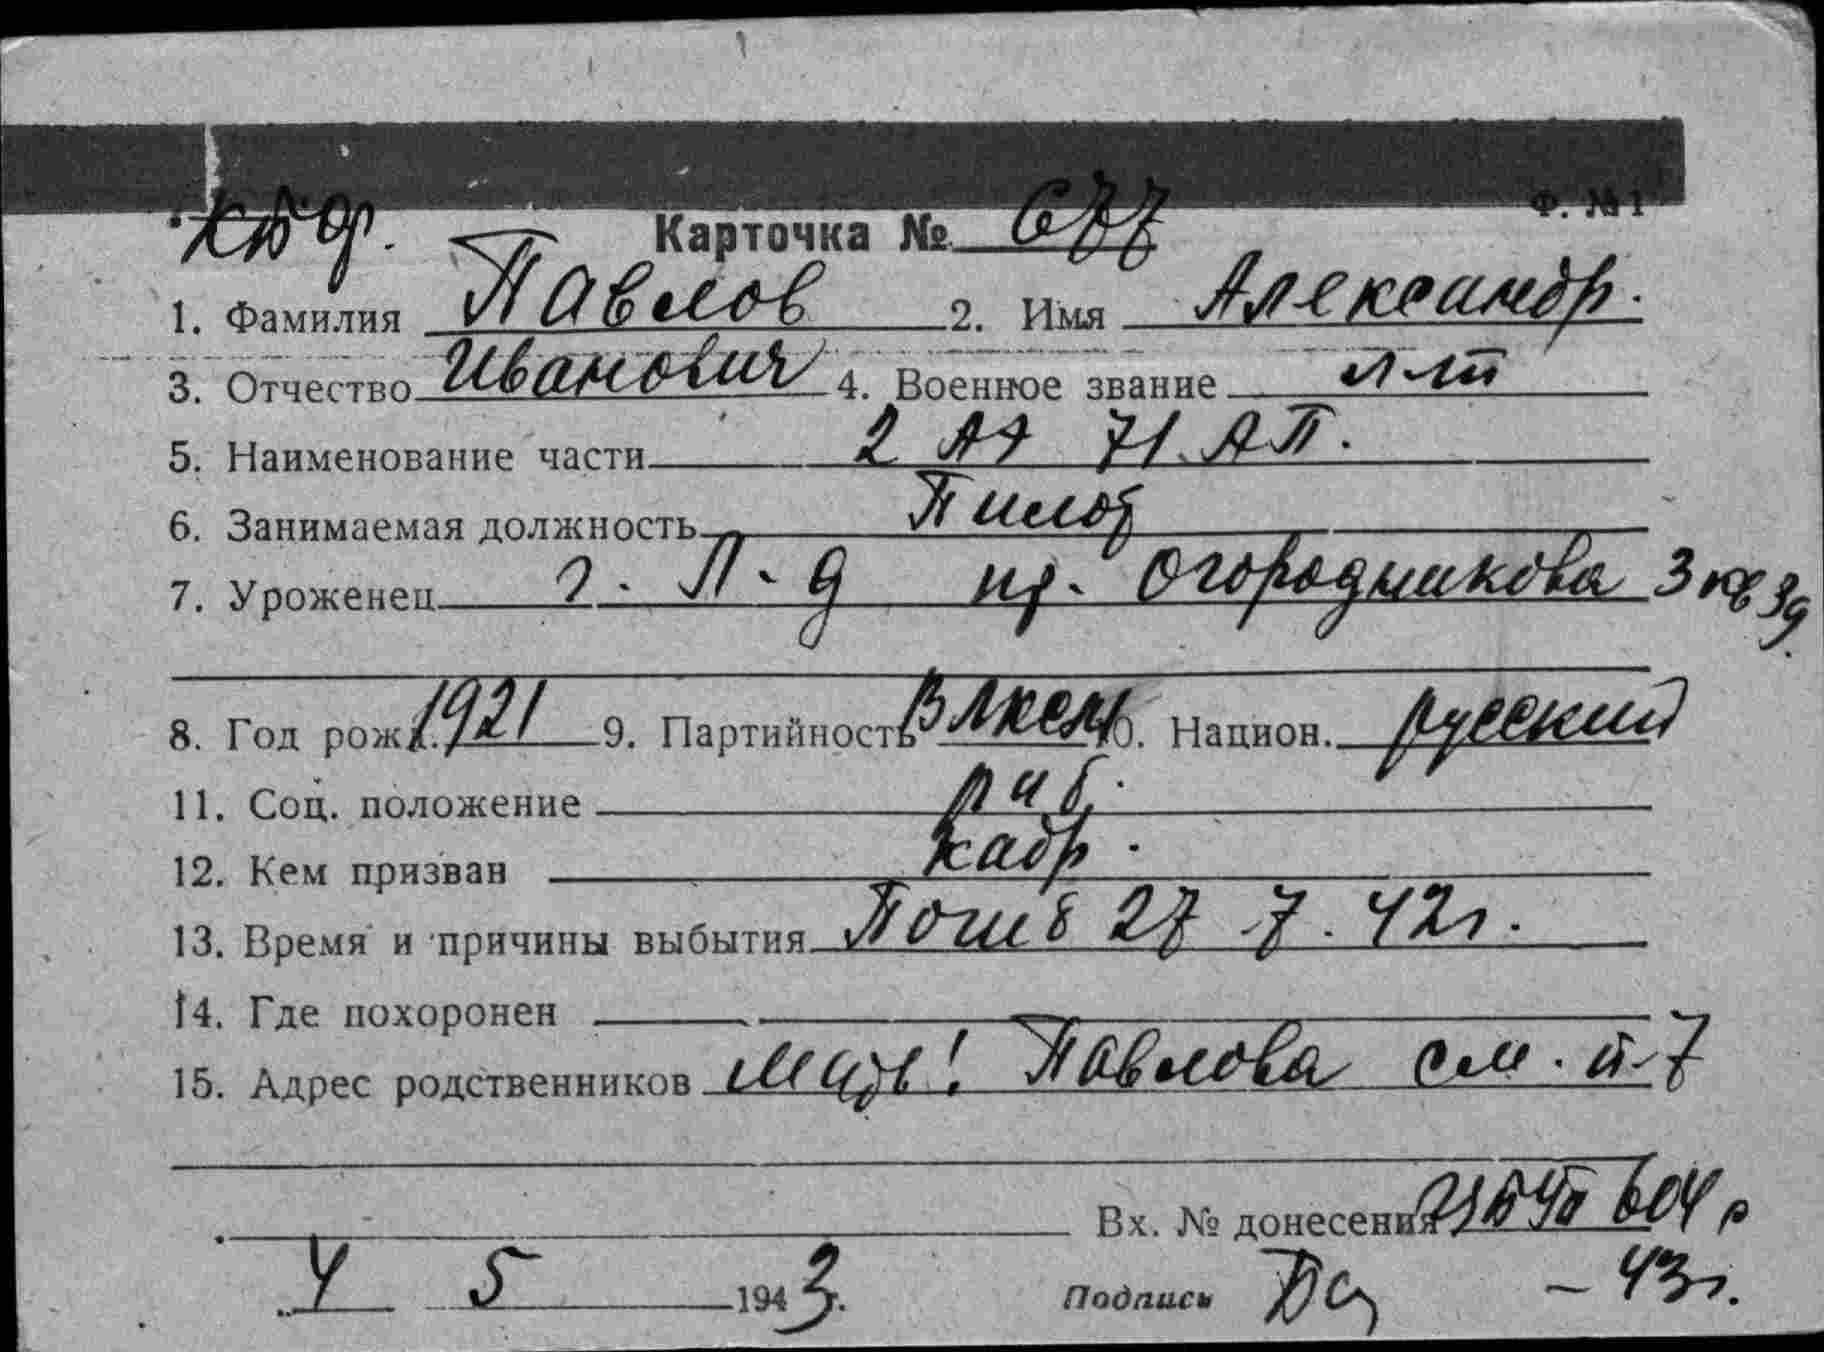 Ф. № 1
Карточка № 677
1. Фамилия Павлов 2. Имя Александр.
3. Отчество Иванович 4. Военное звание л-лт
5. Наименование части 2 АД 71 АП.
6. Занимаемая должность Пилот
7. Уроженец г. Л-д пр. Огородникова 3 кв 39.
8. Год рожд. 1921 9. Партийность ВЛКСМ 10. Национ. русский
11. Соц. положение раб.
12. Кем призван кадр.
13. Время и причины выбытия Погиб 27 7. 42 г.
14. Где похоронен
15. Адрес родственников Мать! Павлова см. п-7
Вх. № донесения 604 с
4 5 1943 г. Подпись – 43 г.